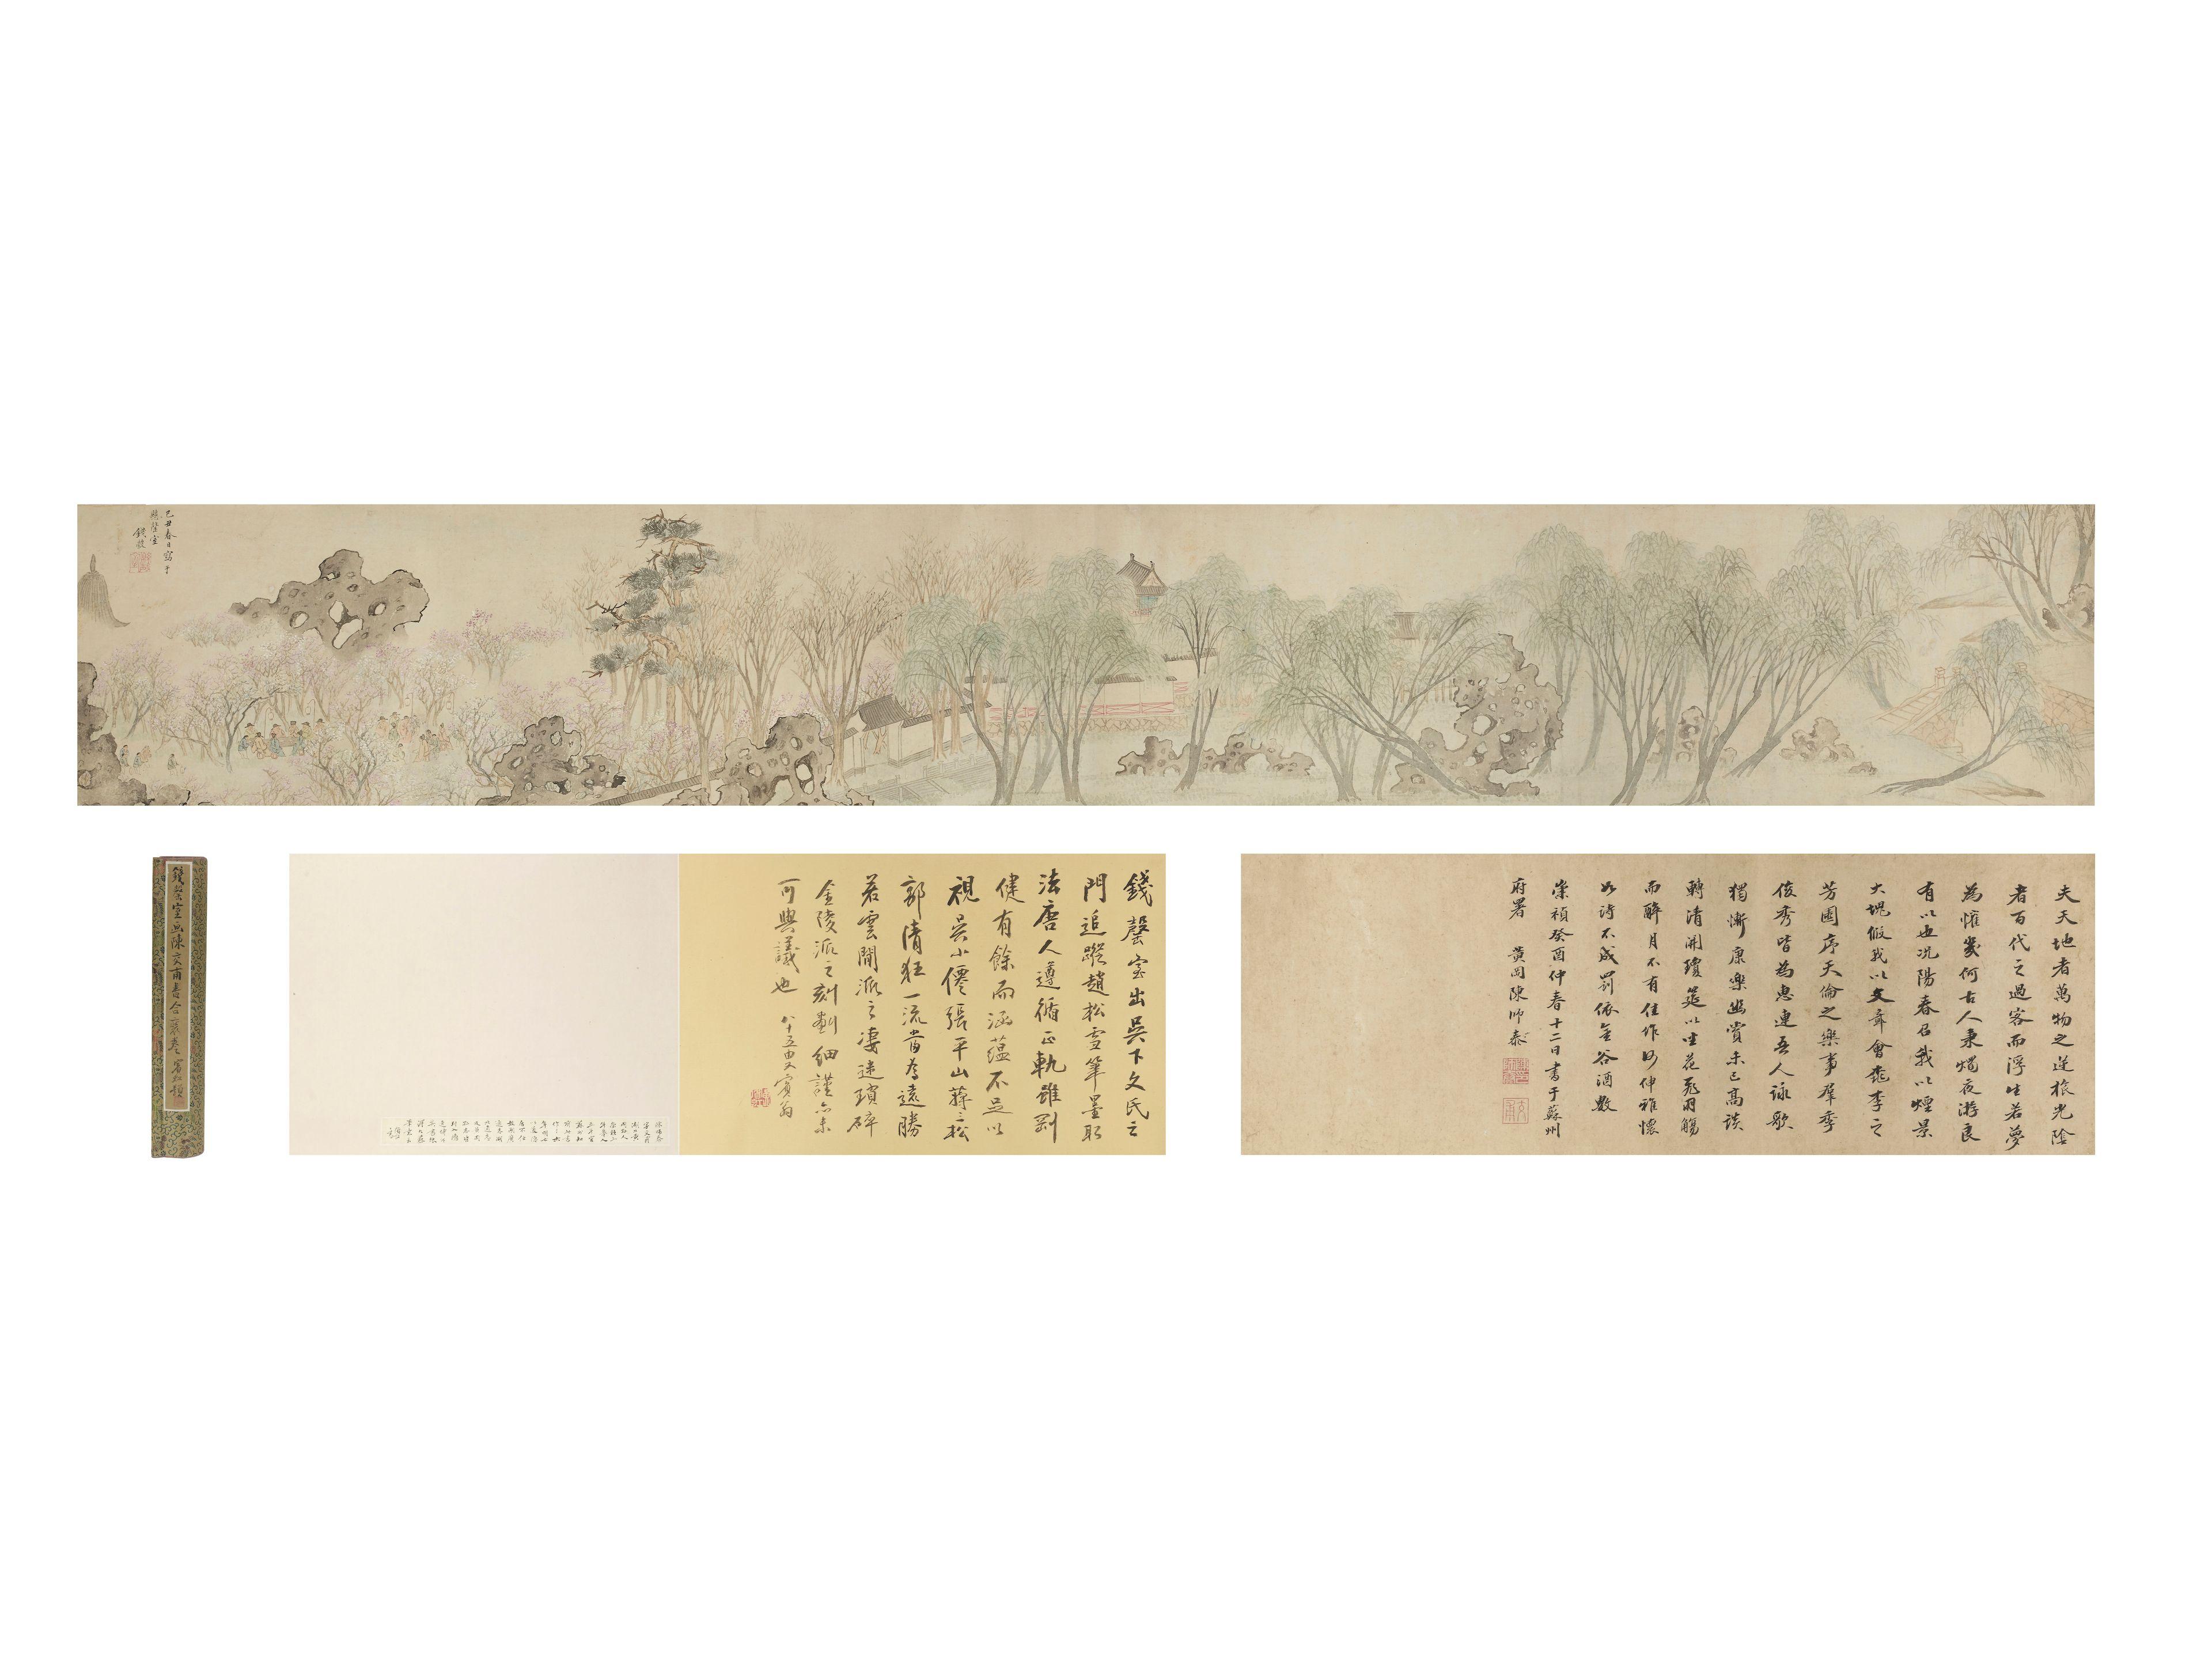 己丑春日寫于
懸磬室
錢穀
夫天地者萬物之逆旅光陰
者百代之過客而浮生若夢
為懽幾何古人秉燭夜游良
有以也況陽春召我以煙景
大塊假我以文章會桃李之
芳園序天倫之樂事羣季
俊秀皆為惠連吾人詠歌
獨慚康樂幽賞未已高談
轉清開瓊筵以坐花飛羽觴
而醉月不有佳作何伸雅懷
如詩不成罰依金谷酒數
崇禎癸酉仲春十二日書于蘇州
府署 黃岡陳師泰
錢罄室出吳下文氏之
門追蹤趙松雪筆墨取
法唐人遵循正軌雖剛
健有餘而涵蘊不足以
視吳小僊張平山蔣三松
郭清狂一流當為遠勝
若雲間派之淒迷瑣碎
金陵派之刻劃細謹亦未
可與議也 八十五叟賓翁
錢罄室畫陳文甫書合裝卷 賓虹題